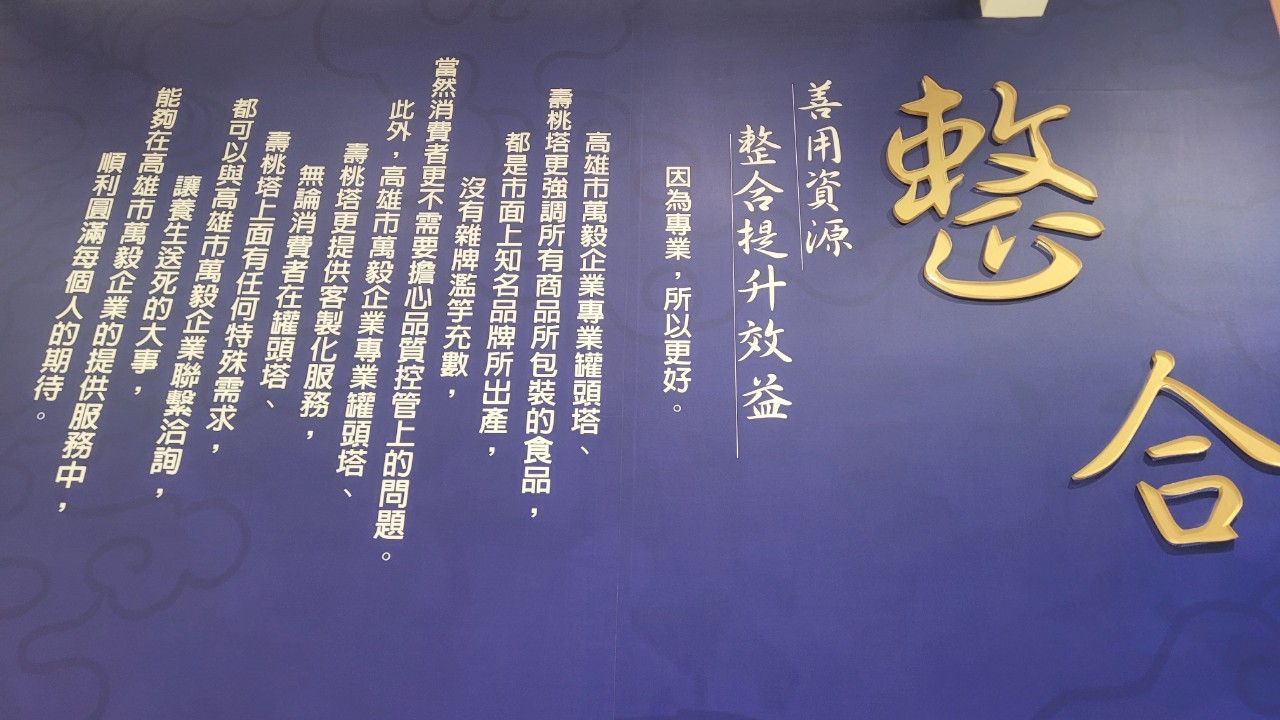 整合
善用資源
整合提升效益
因為專業，所以更好。
高雄市萬毅企業專業罐頭塔、
壽桃塔更強調所有商品所包裝的食品，
都是市面上知名品牌所出產，
沒有雜牌濫竽充數，
當然消費者更不需要擔心品質控管上的問題。
此外，高雄市萬毅企業專業罐頭塔、
壽桃塔更提供客製化服務，
無論消費者在罐頭塔、
壽桃塔上面有任何特殊需求，
都可以與高雄市萬毅企業聯繫洽詢，
讓養生送死的大事，
能夠在高雄市萬毅企業的提供服務中，
順利圓滿每個人的期待。